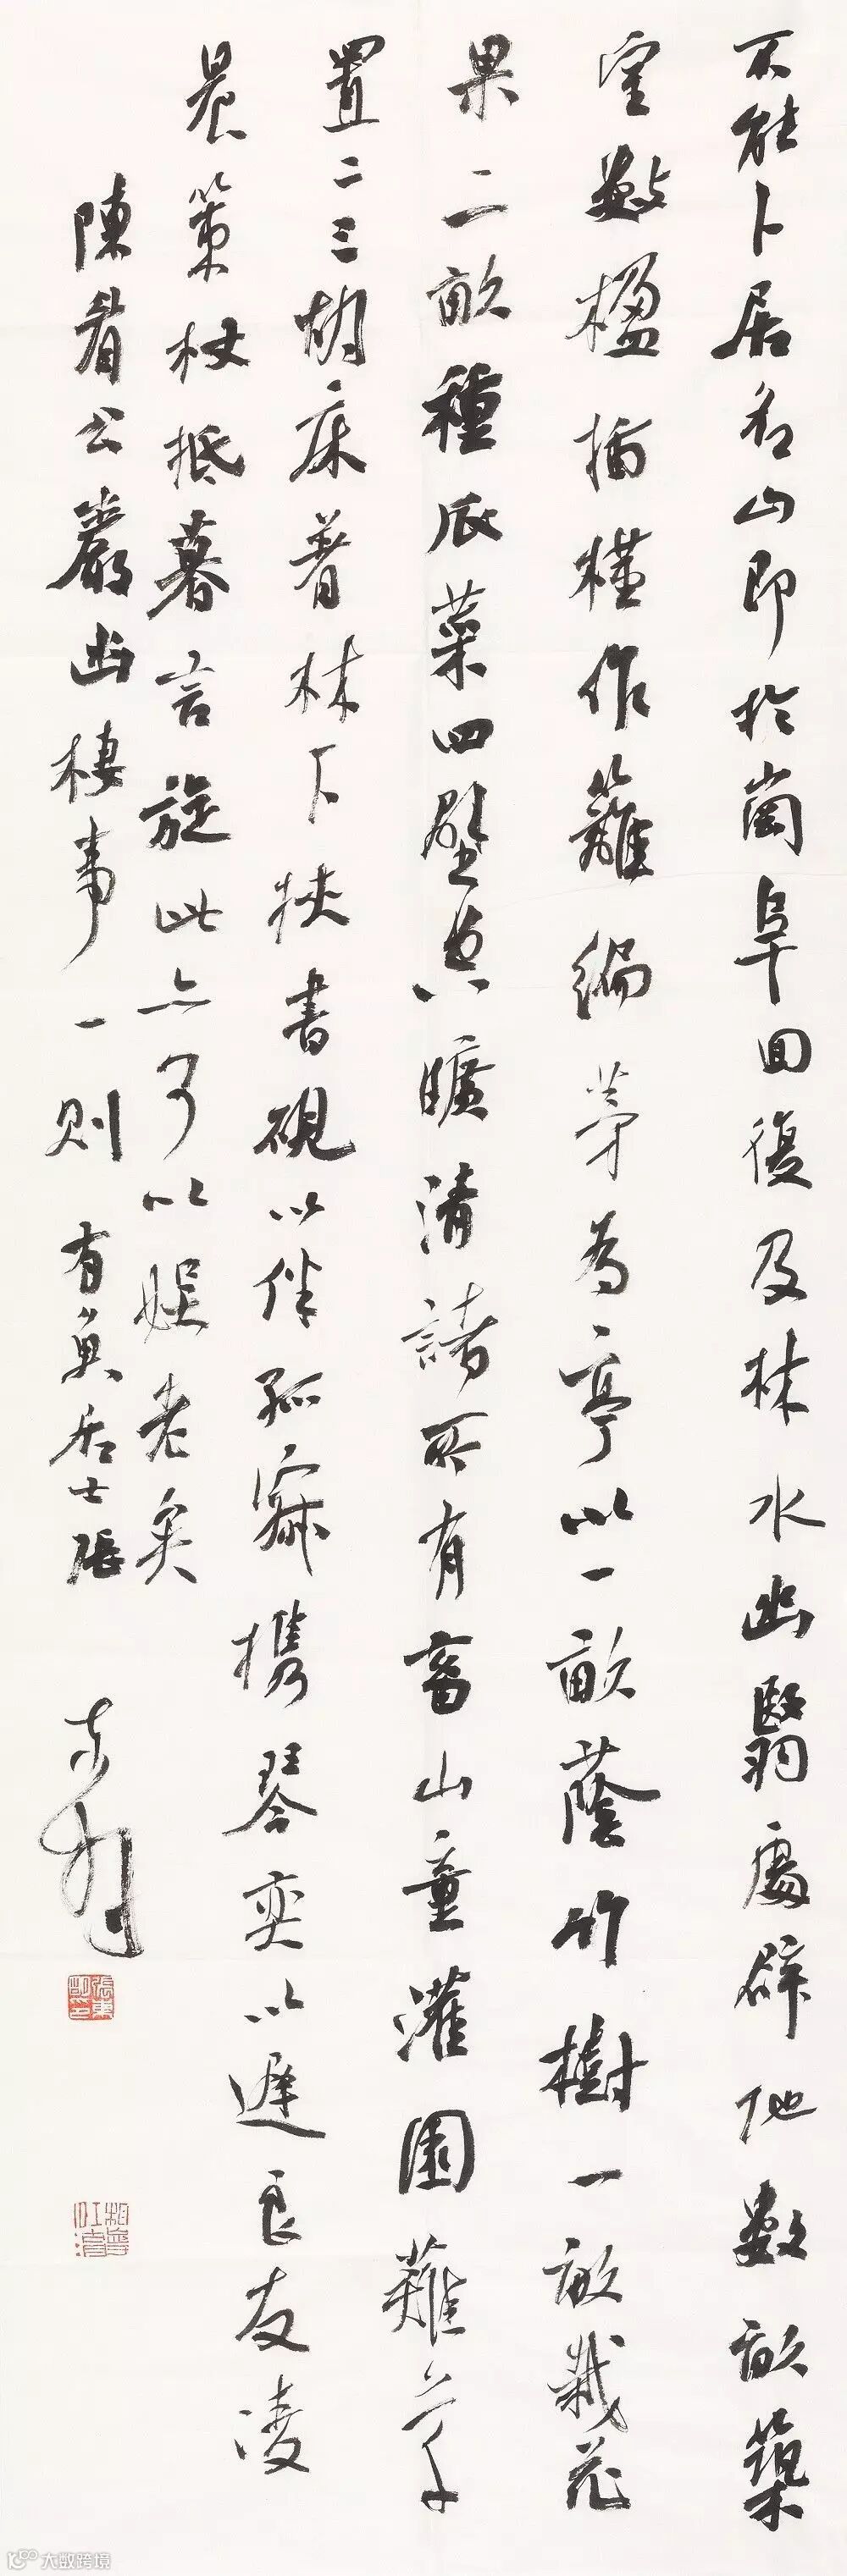 不能卜居名山即於崗阜回復及林水幽翳處辟地數畝築
室數楹插槿作籬編茅為亭以一畝蔭竹樹一畝栽花
果二畝種瓜菜四壁空曠清諸所有畜山童灌園薙草
置二三胡床著林下挾書硯以伴孤寂攜琴奕以遲良友凌
晨策杖抵暮言旋此亦可以娛老矣
陳眉公巖幽棲事一則 有魚居士張
大数跨境